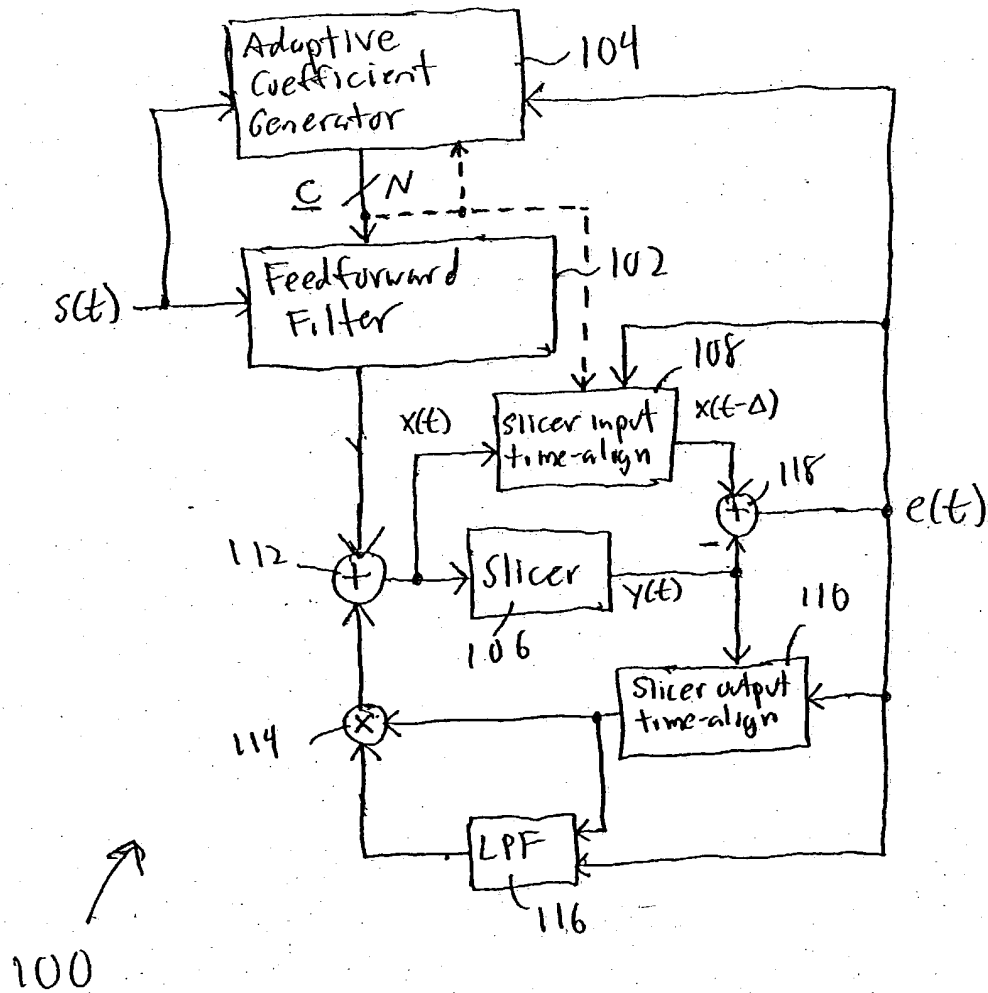 Adaptive
Coefficient
Generator
104
C
N
Feedforward
Filter
102
s(t)
108
x(t)
Slicer input
time-align
x(t-Δ)
118
+
e(t)
112
+
Slicer
-
y(t)
106
110
Slicer output
time-align
114
x
LPF
116
100